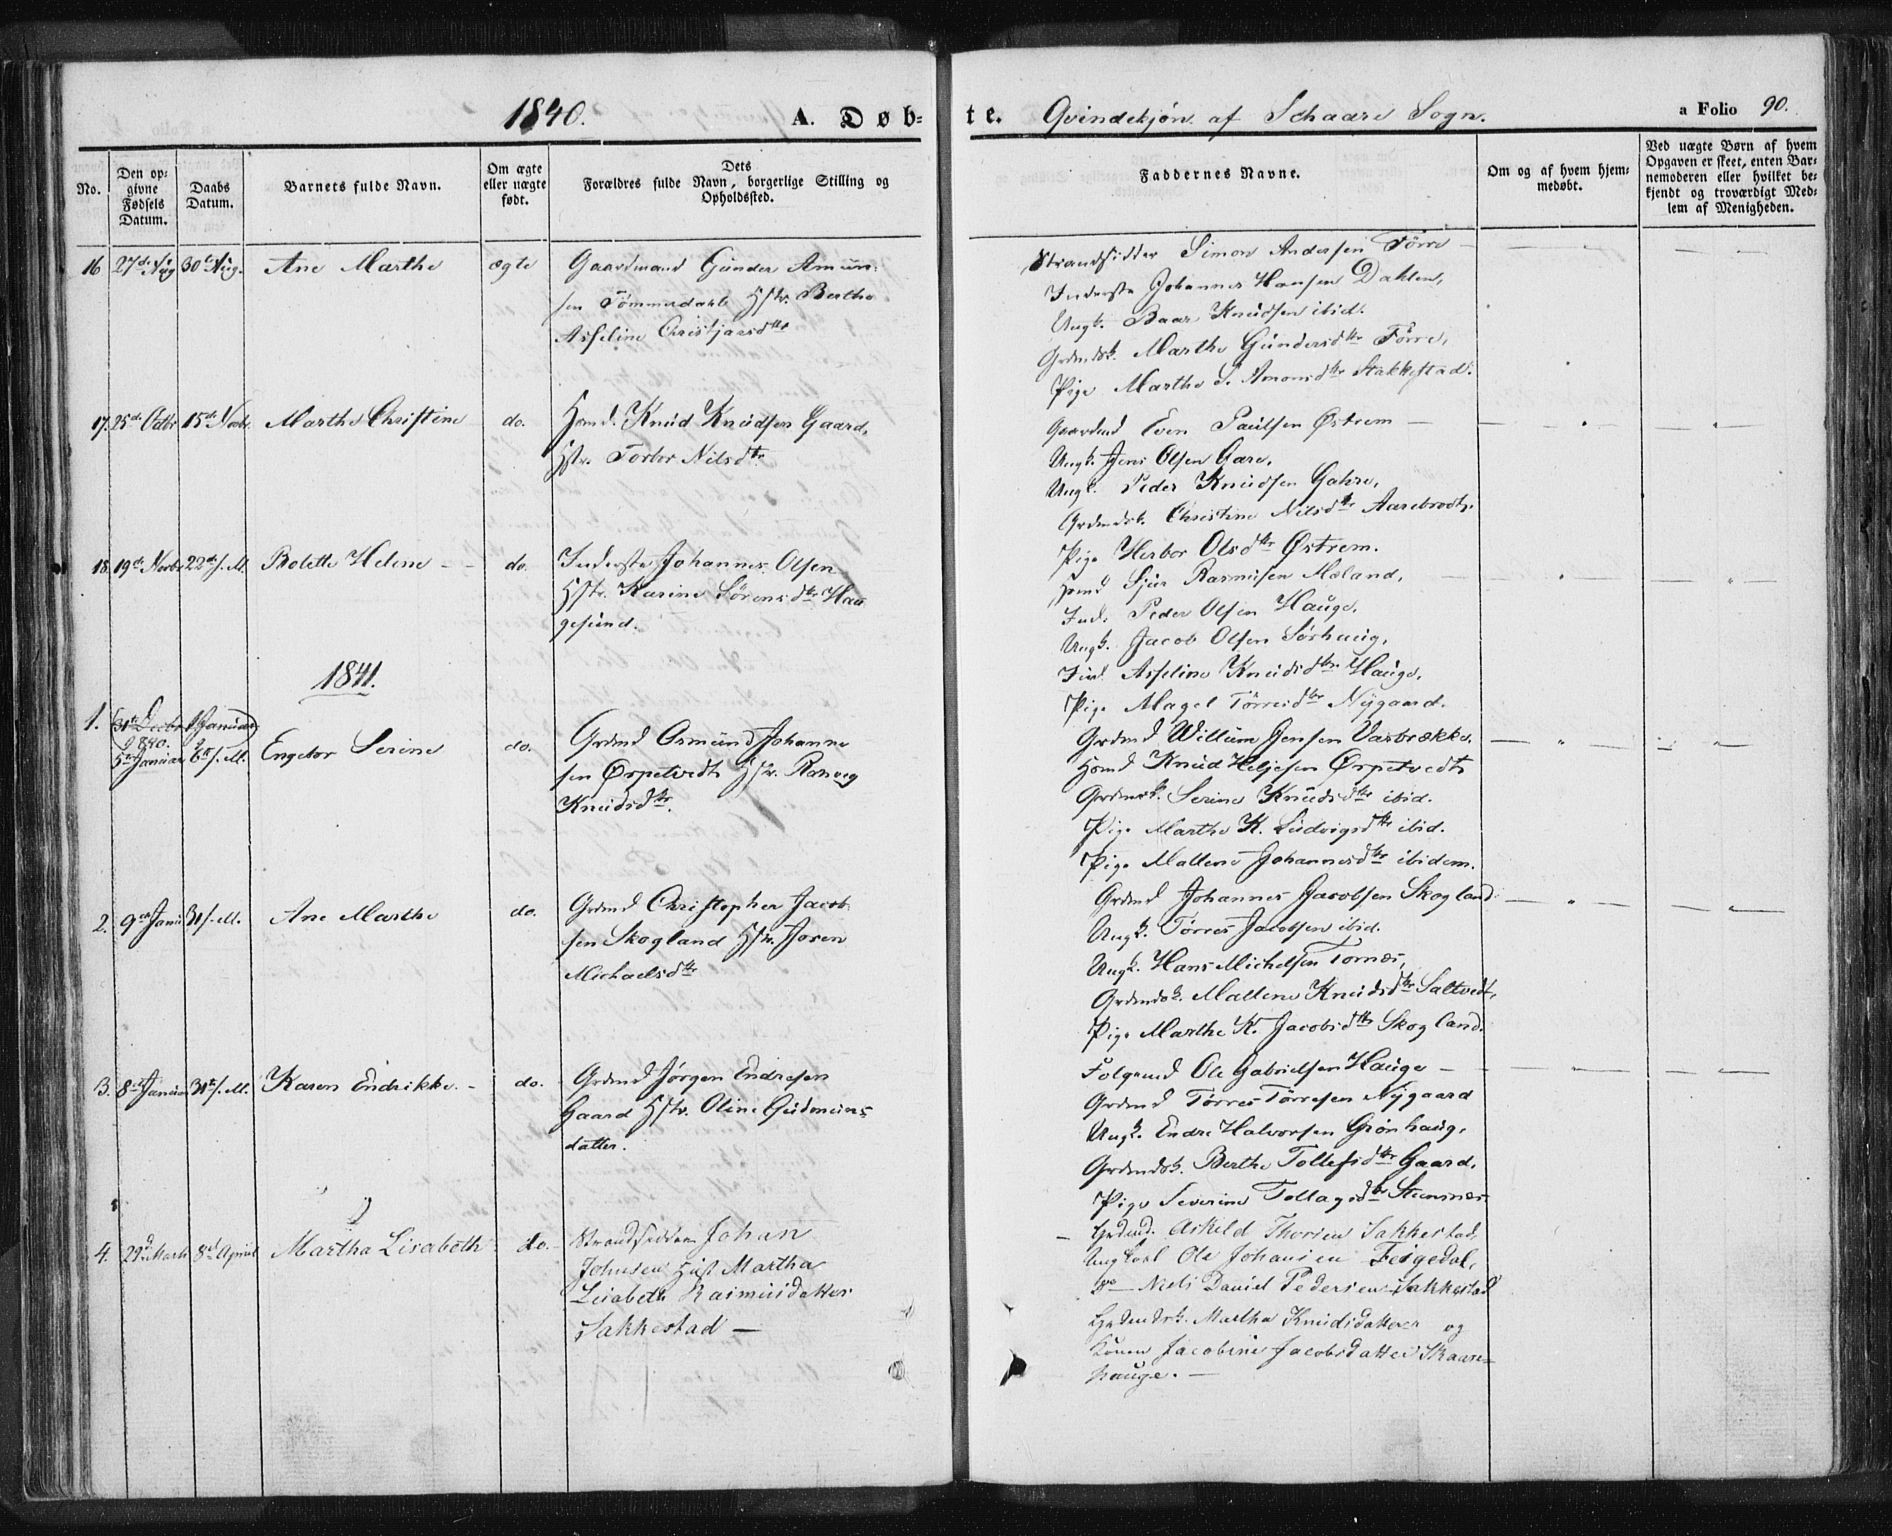 1840. A. Døb-
No.
Den opgivne Fødsels Datum.
Daabs Datum.
Barnets fulde Navn.
Om ægte eller uægte født.
Forældres fulde Navn, borgerlige Stilling og Dets Opholdssted.
16 27de Aug 30te Aug. Ane Marthe ægte Gaardmand Gunder Amun-
sen Tømmerdahl Hstr. Berthe
Asseline Christjansdtr
17. 25de Octbr 15de Novbr. Marthe Christine do. Hsmd. Knud Knudsen Gaard,
Hstr. Torbor Nilsdtr.
18. 19de Novbr 22de s. M. Bolette Helene - - do. Inderste Johannes Olsen
Hstr. Karine Sørensdtr Hau-
gesund.
1841.
1. (31te Decbr 1840. 1ste Januar)
5te Januar 6te s. M. Engebor Serine do. Grdmd Osmund Johanne-
sen Ørpetvedt Hstr. Ranveg
Knudsdtr.
2. 9de Janu 31 s. M. Ane Marthe do. Grdmd Christopher Jacob-
sen Skogland Hstr. Joren
Michaelsdtr
3. 8de Januar 31te s. M. Karen Endrikke. - do. Grdmd Jørgen Endresen
Gaard Hstr. Oline Gudmuns-
datter.
4. 29de Marts 8de April Martha Lisabeth do. Strandsidder Johan
Johnsen Hust Martha
Lisabeth Rasmusdatter
Sakkestad —
te. Qvindekjøn af Schaare Sogn. a Folio 90.
Faddernes Navne.
Om og af hvem hjemmedøbt.
Ved uægte Børn af hvem Opgaven er skeet, enten Barnemoderen eller hvilket bekjendt og troværdigt Medlem af Menigheden.
Strandsidder Simon Andersen Førre —
Inderste Johannes Hansen Dahlen,
Ungk. Baar Knudsen ibid.
Grdmdsk. Marthe Gundersdtr Førre,
Pige Marthe S. Amonsdtr Stakkestad.
Gaardmd Even Paulsen Østrem —
Ungk. Jens Olsen Gare,
Ungk. Peder Knudsen Gahre,
Grdmdsk. Christine Nilsdtr Aarebrodt,
Pige Herbor Olsdtr Østrem.
Hsmd Sjur Rasmusen Moland,
Ind. Peder Olsen Hauge,
Ungk. Jacob Olsen Sørhaug,
Ind. Asseline Knudsdtr Hauge,
Pige Magel Tørresdtr Nygaard.
Grdmd Willum Jensen Vasbrække.
Hsmd Knud Heljesen Ørpetvedt
Grdmsk. Serine Knudsdtr ibid.
Pige Marthe K. Ludvigsdtr ibid.
Pige Mallene Johannesdtr ibidem.
Grdmd Johannes Jacobsen Skogland
Ungk. Tørres Jacobsen ibid.
Ungk. Hans Michelsen Tornæs,
Grdmdsk. Mallene Knudsdtr Saltvedt,
Pige Marthe K. Jacobsdtr Skogland.
Folgemd Ole Gabrielsen Hauge —
Grdmd Tørres Tørresen Nygaard
Ungk. Endre Halvorsen Grønhaug,
Grdmdsk. Berthe Tollefsdtr Gaard,
Pige Severine Tollagsdtr Stensnæs
— Grdmd. Askeld Thorsen Sakkestad,
Ungkarl Ole Johansen Feigedal,
do — Niels Daniel Pedersen Sakkestad
Grdmdsk. Martha Knudsdatter og
Konen Jacobine Jacobsdatter Skaare-
hauge. —